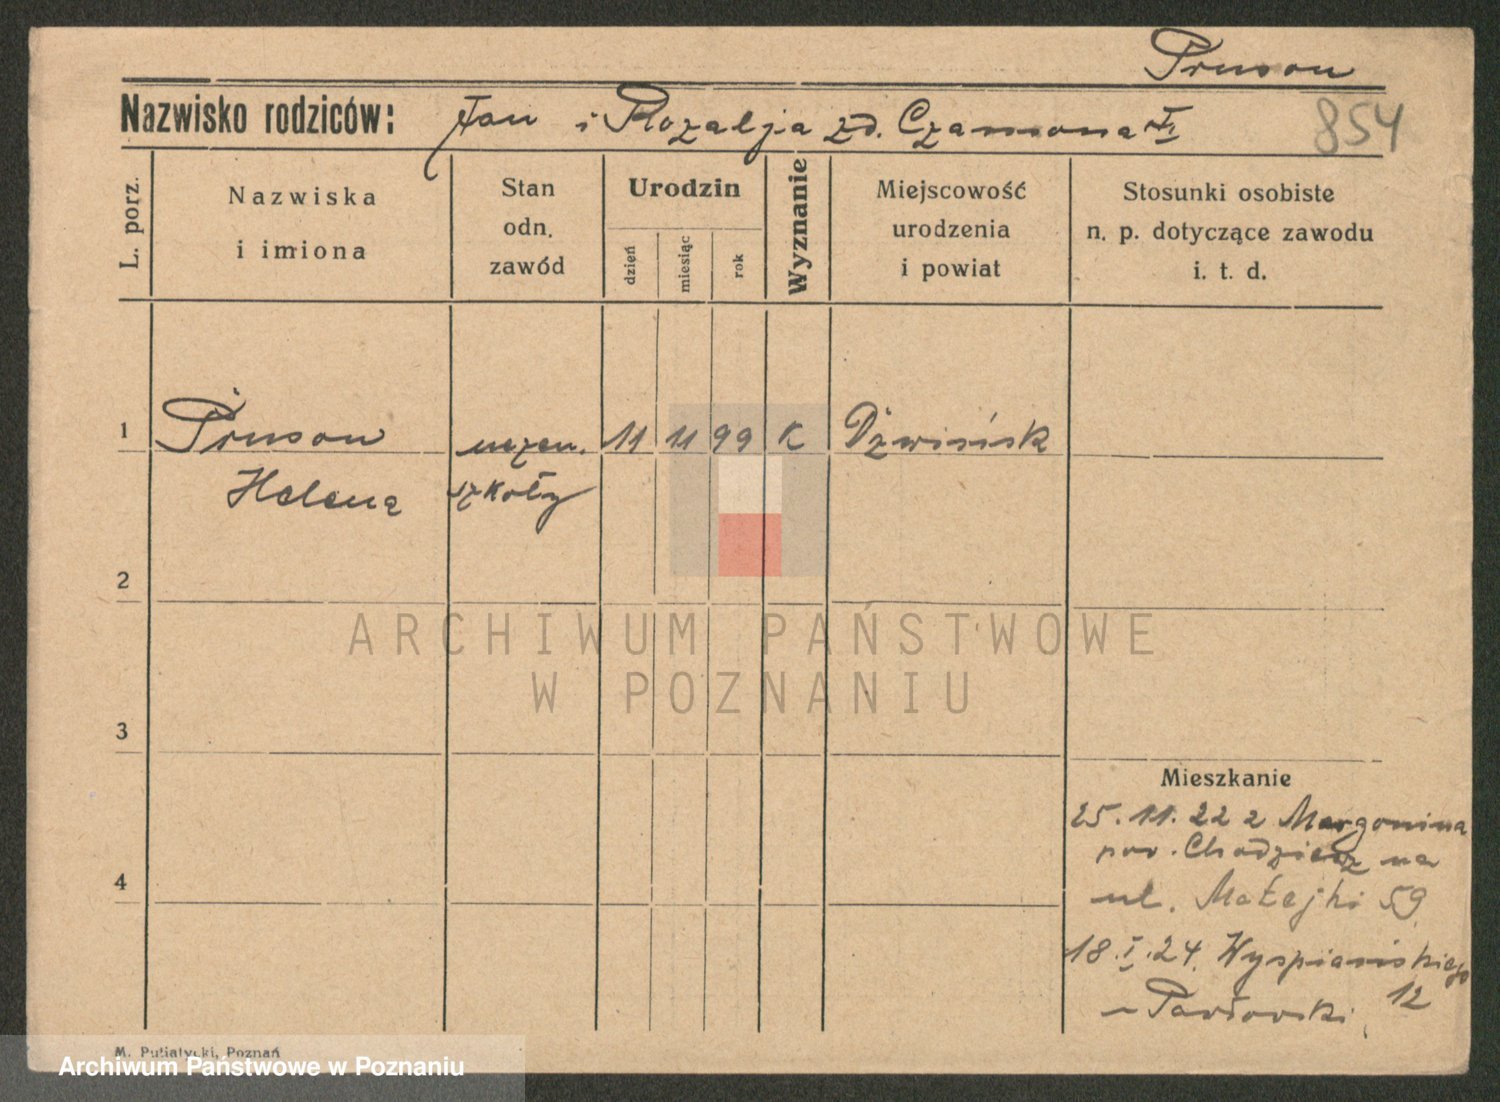 Pruson
Nazwisko rodziców: Jan i Rozalja zd.
854
L. porz.
Nazwiska
i imiona
Stan
odn.
zawód
Urodzin
dzień
miesiąc
rok
Wyznanie
Miejscowość
urodzenia
i powiat
Stosunki osobiste
n. p. dotyczące zawodu
i. t. d.
1 Pruson 11 11 99 K Dźwińsk
Helena szkoły
2
ARCHIWUM PAŃSTWOWE
W POZNANIU
3
Mieszkanie
25.11.22 z Margonina
pow. Chodzież na
4
ul. Matejki 59
18.I.24. Wyspiańskiego
12
Pawłowski
M. Putiatycki, Poznań
Archiwum Państwowe w Poznaniu